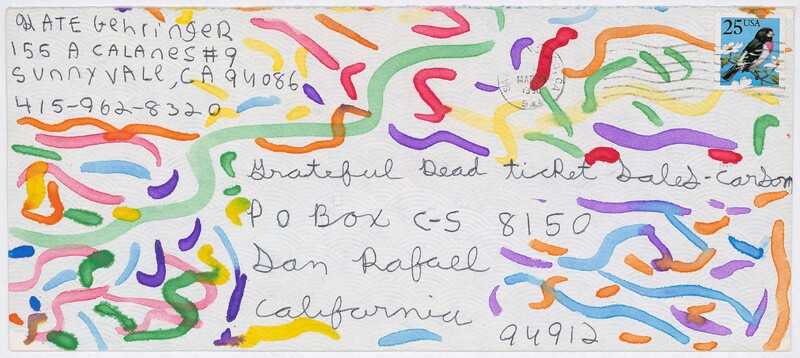 NATE GehrinGeR
155 A CALANES #9
SunnyVAle, CA 94086
415-962-8320
25 USA
MAR
Grateful Dead ticket Sales-Carson
P O Box C-S 8150
San Rafael
California
94912